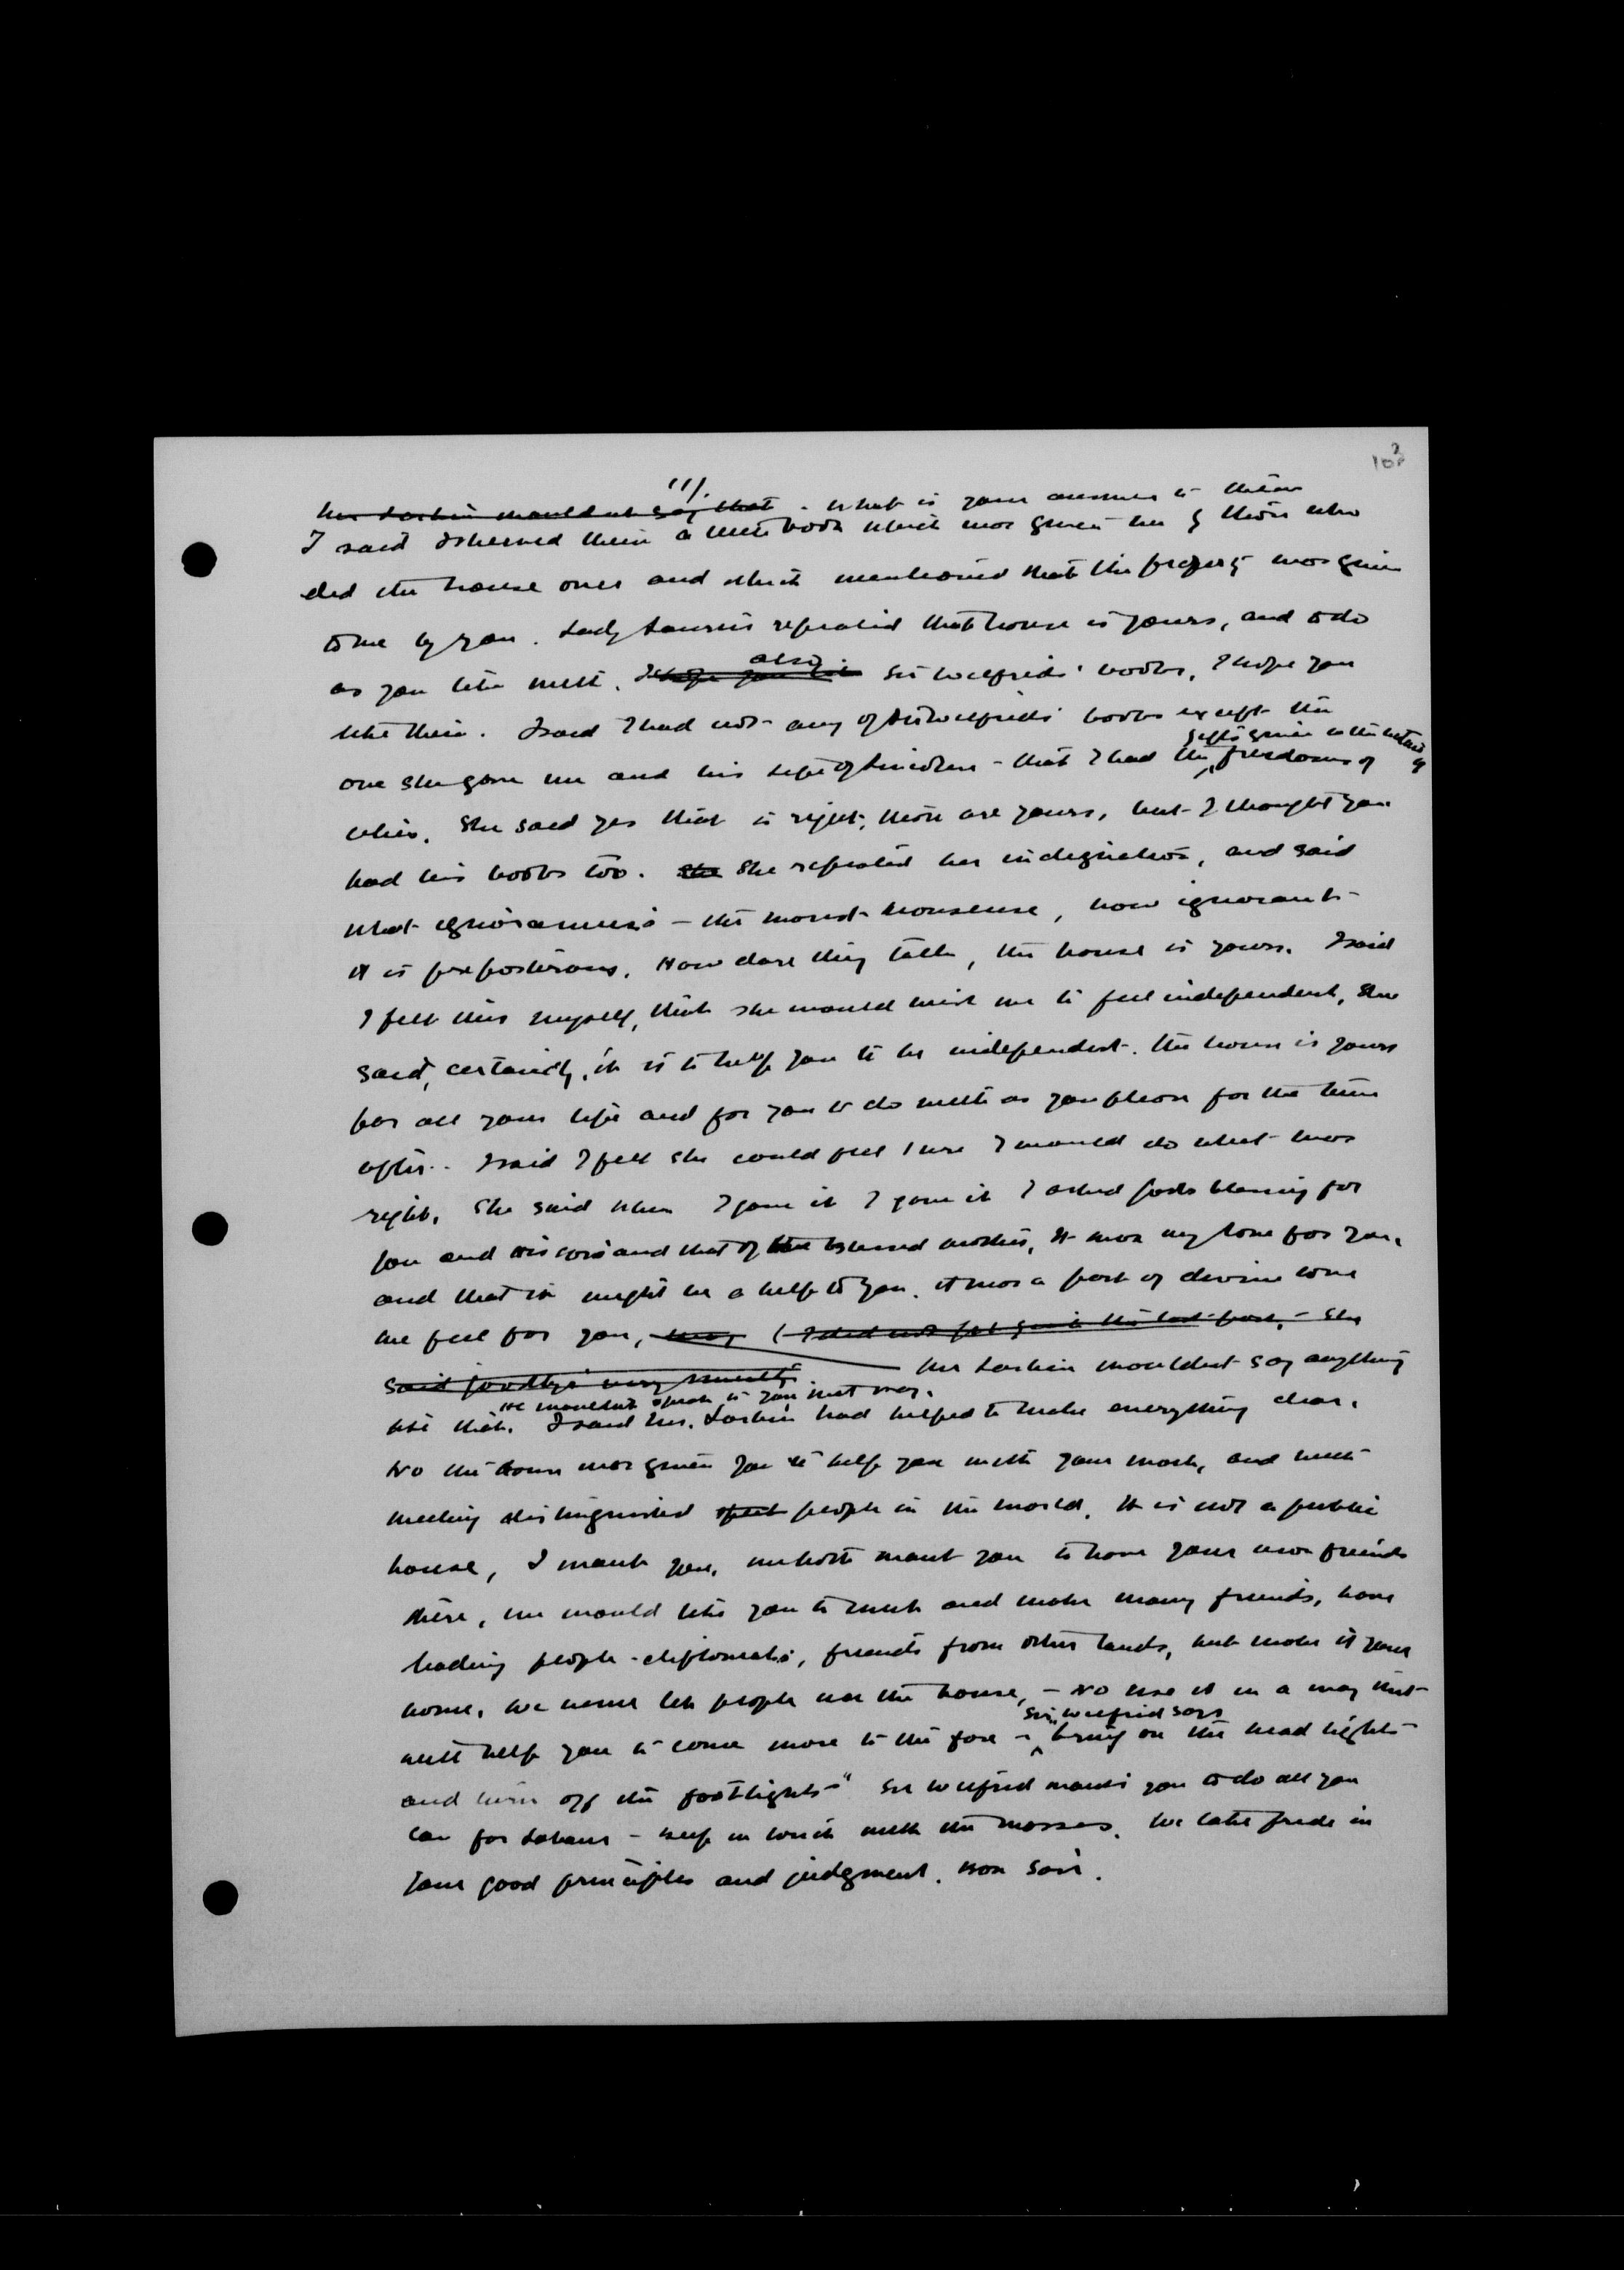 103
11/.
Mr Larkin wouldnt say that. What is your answer to them
I said I showed them a little book which was given me by those who
did the house over and which mentioned that the property was given
to me by you. Lady Laurier repeated that house is yours, and to do
as you like with. I hope you like also Sir Wilfrids' books, I hope you
like them. I said I had not any of Sir Wilfrids' books except the
one she gave me and his life of Lincoln - that I had the freedoms of
gifts given in the
cities. She said yes that is right, those are yours, but I thought you
had his books too. She She repeated her indignation, and said
What ignoramuses - the worst nonsense, how ignorant
it is preposterous. How dare they talk, the house is yours. I said
I felt this myself, that she would wish me to feel independent, She
said, certainly, it is to help you to be independent. The house is yours
for all your life and for you to do with as you please for the time
after. I said I felt she could feel sure I would do what was
right. She said when I gave it I gave it I asked Gods blessing for
you and and that of the blessed mother, It was my love for you,
and that it might be a help to you. it was a part of divine love
we feel for you, (I did not get quite the last part, - She
said goodbye very Mr Larkin wouldnt say anything
He wouldnt speak to you that way.
like that. I said Mr. Larkin had helped to make everything clear.
No the house was given you to help you with your work, and with
meeting distinguished people in the world. It is not a public
house, I want you, we both want you to have your own friends
there, we would like you to meet and make many friends, have
leading people - diplomats, friends from other lands, but make it your
home. We never let people use the house, - No use it in a way that
Sir Wilfrid says
will help you to come more to the fore - bring on the head lights
and turn off the footlights" Sir Wilfrid wants you to do all you
can for Labour - keep in touch with the masses. We take pride in
your good principles and judgment. Bon Soir.